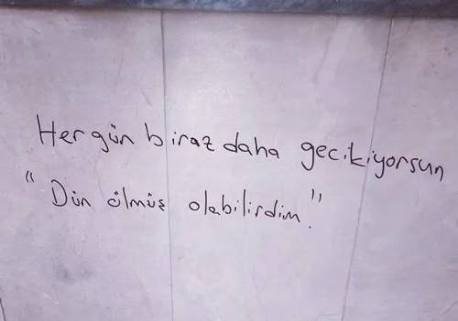 Hergün biraz daha gecikiyorsun
"Dün ölmüş olabilirdim."